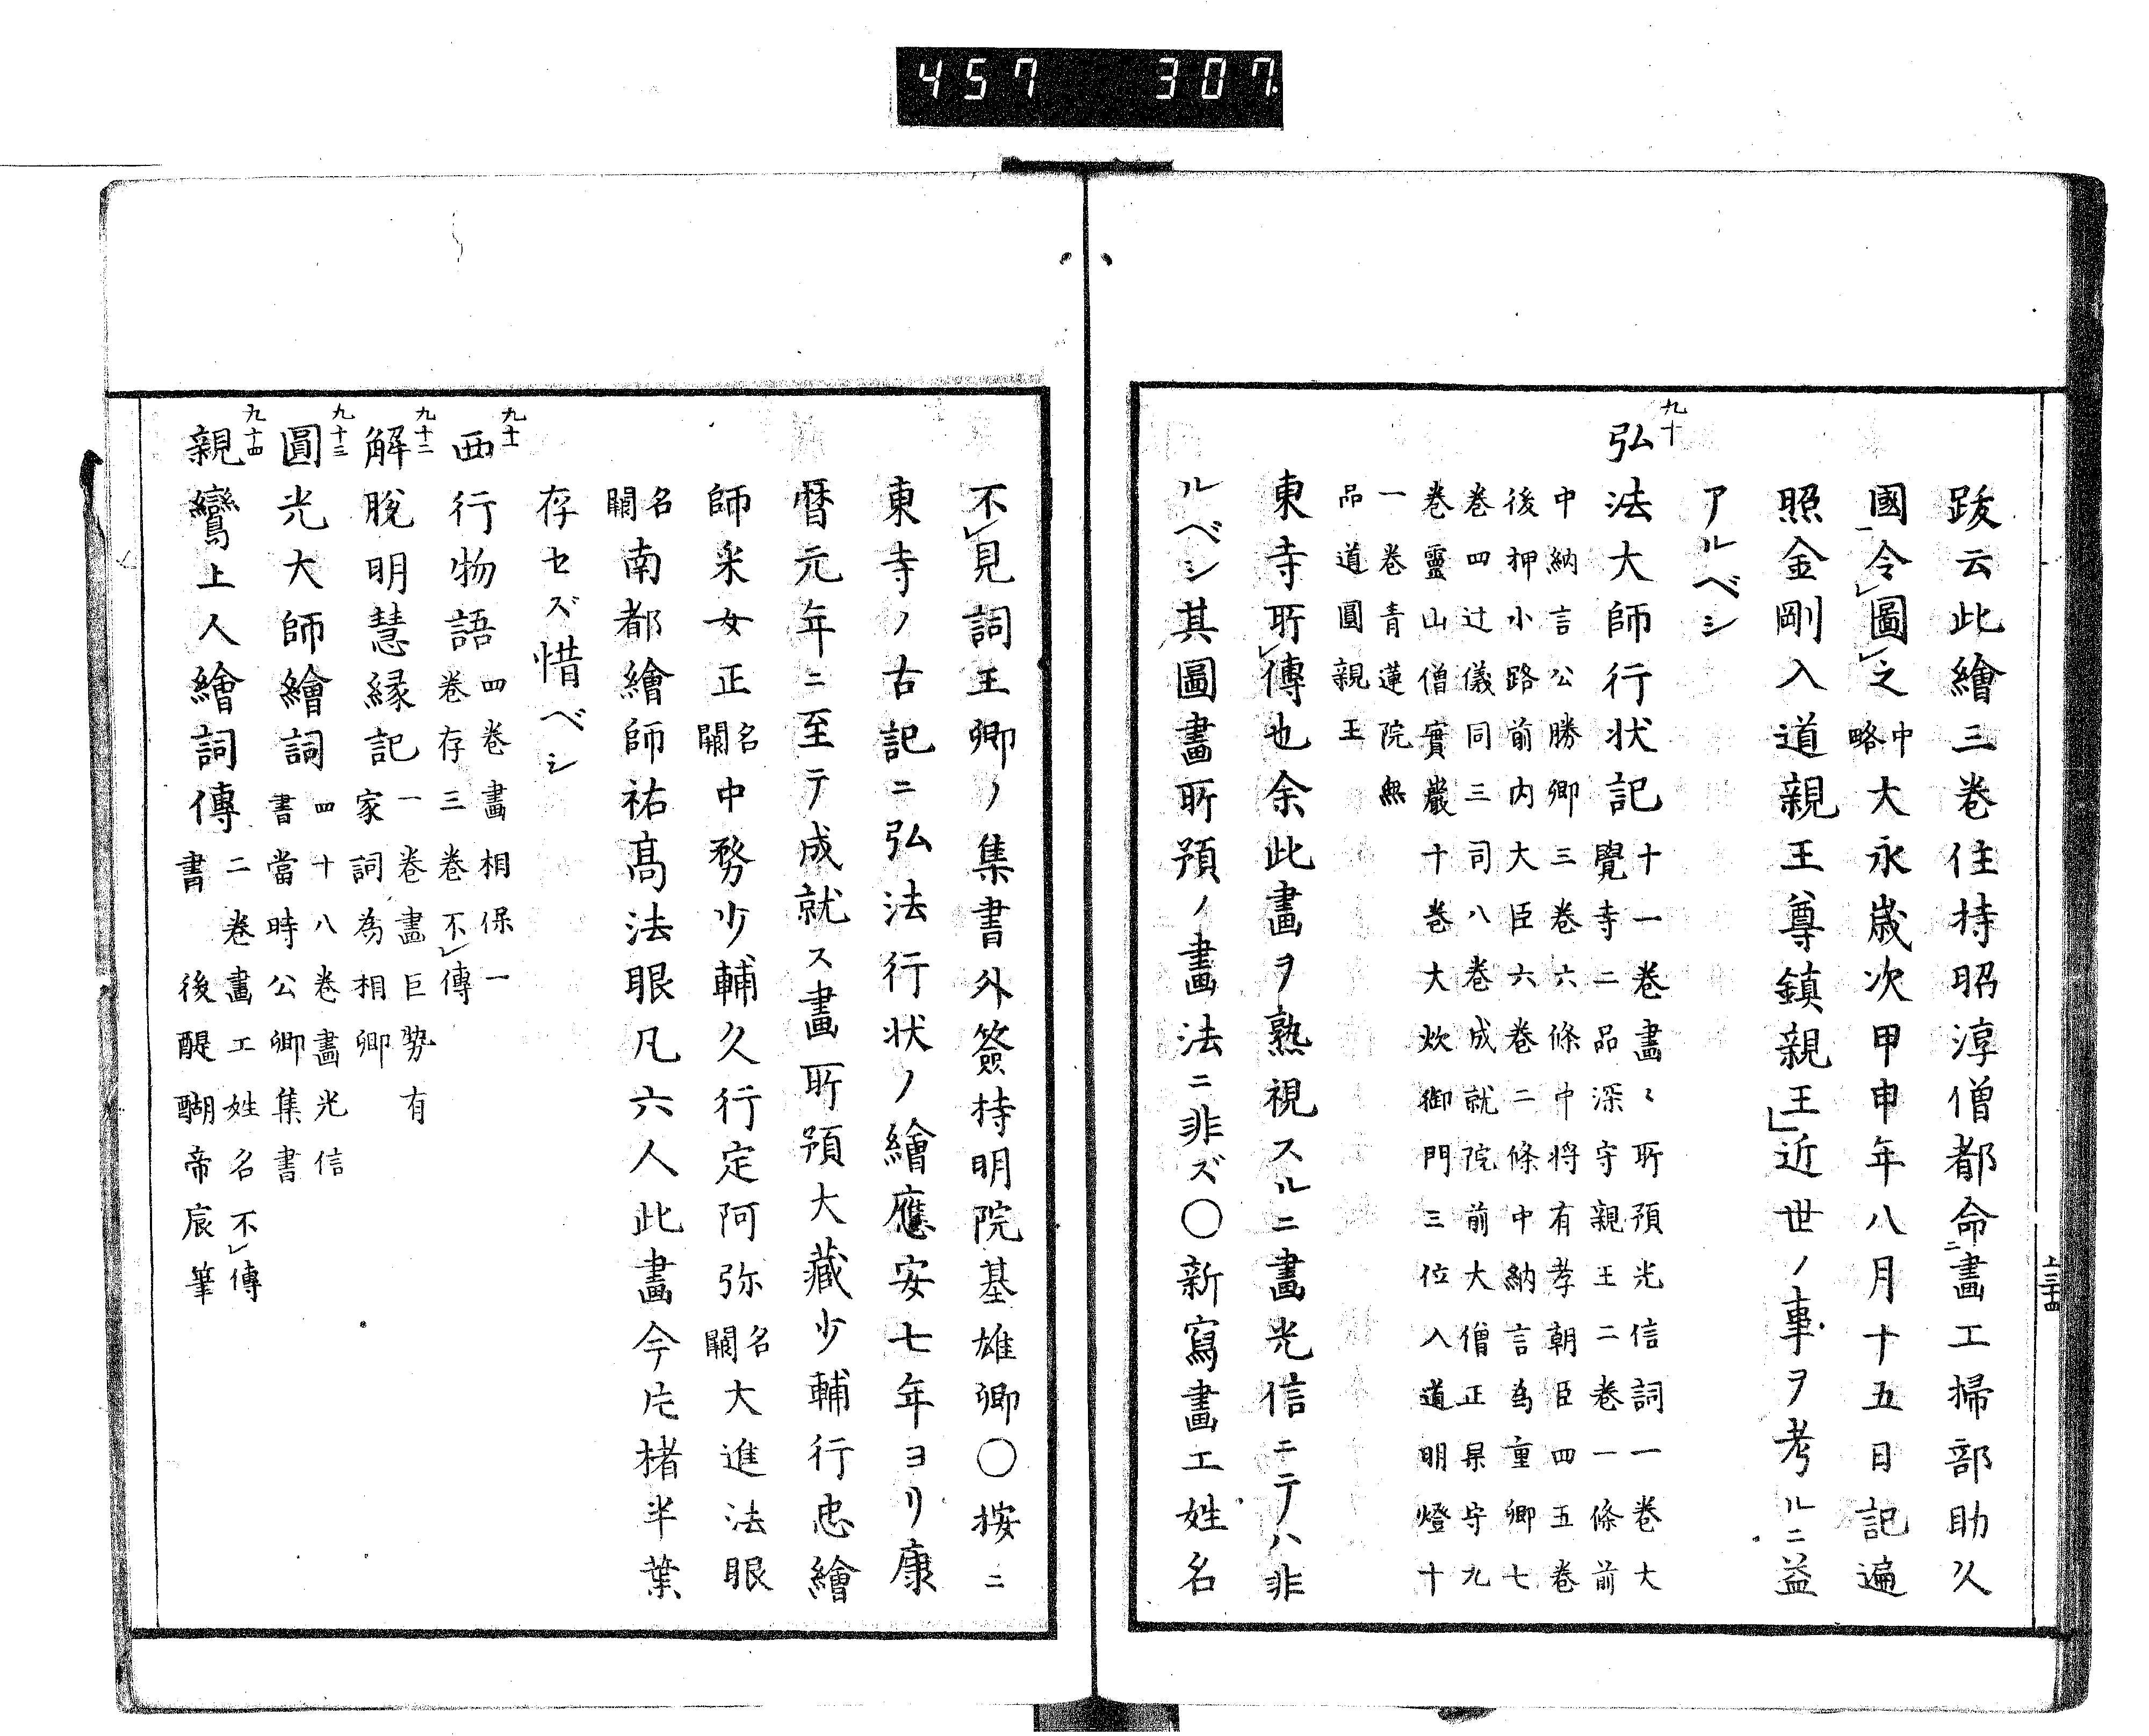 457 307.
上三十四
跋云此繪三卷住持昭淳僧都命ニ畫工掃部助久
國一令レ圖レ之中略大永歲次甲申年八月十五日記遍
照金剛入道親王尊鎮親王」近世ノ事ヲ考ルニ益
アルベシ
九十
弘法大師行状記十一卷畫〻所預光信詞一卷大
覺寺二品深守親王二卷一條前
中納言公勝卿三卷六條中将有孝朝臣四五卷
後押小路前内大臣六卷二條中納言為重卿七
卷四辻儀同三司八卷成就院前大僧正杲守九
卷靈山僧實嚴十卷大炊御門三位入道明燈十
一卷青蓮院無
品道圓親王
東寺所レ傳也余此畫ヲ熟視スルニ畫光信ニテハ非
ルベシ其圖畫所預ノ畫法ニ非ズ〇新寫畫工姓名
不レ見詞王卿ノ集書外簽持明院基雄卿〇按ニ
東寺ノ古記ニ弘法行状ノ繪應安七年ヨリ康
暦元年ニ至テ成就ス畫所預大藏少輔行忠繪
師采女正名闕中務少輔久行定阿弥名闕大進法眼
名闕南都繪師祐髙法眼凡六人此畫今片楮半葉
存セズ惜ベシ
九十一
西行物語四卷畫相保一
卷存三卷不レ傳
九十二
解脱明慧縁記一卷畫巨勢有
家詞為相卿
九十三
圓光大師繪詞四十八卷畫光信
書當時公卿集書
九十四
親鸞上人繪詞傳二卷畫工姓名不レ傳
書 後醍醐帝宸筆